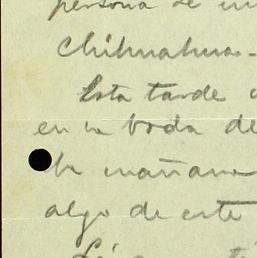 persona de
Chihuahua-
Esta tarde
en la boda de
mañana
algo de este